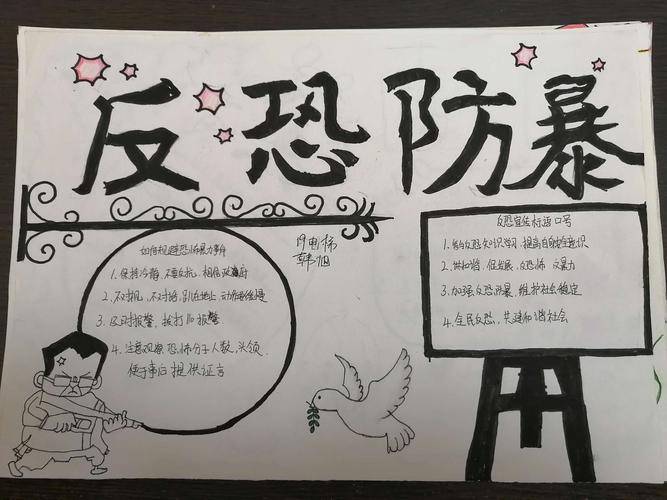 反恐防暴
19电梯
韩旭
如何规避恐怖暴力事件
1.保持冷静,不要反抗,相信政府
2.不对视,不对话,趴在地上,动作要缓慢
3.及时报警,拨打110报警.
4.注意观察恐怖分子人数,头领,
便于事后提供证言
反恐宣传标语口号
1.反恐知识学习,提高自
2.共和谐,促发展,反恐怖
3.加强反恐防暴,维护社会稳定
4.全民反恐,共建和谐社会